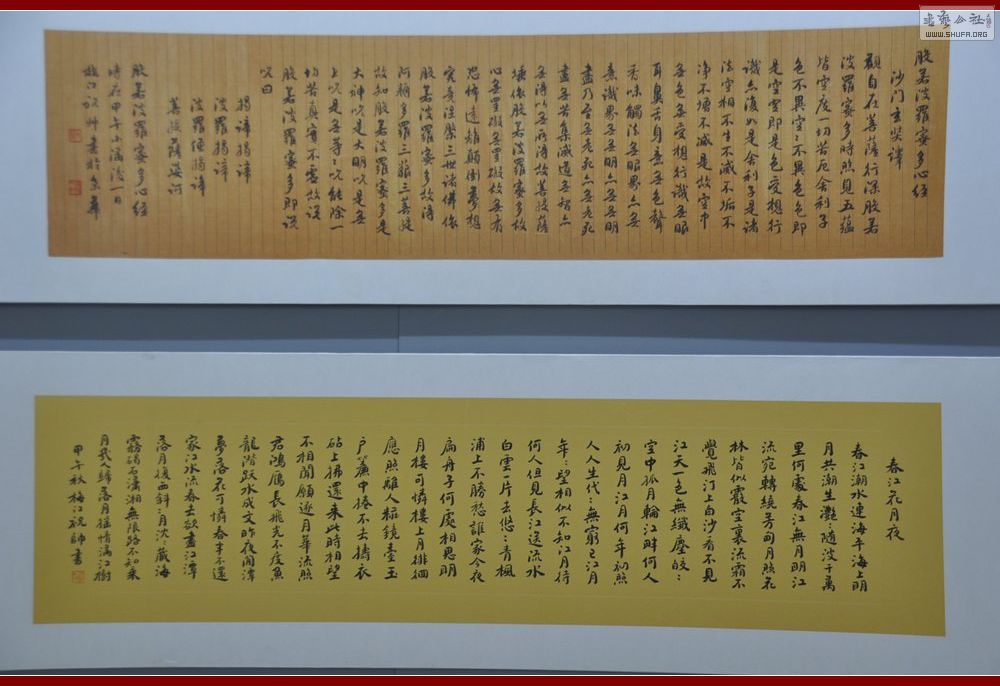 書藝公社
WWW.SHUFA.ORG
般若波羅蜜多心經
沙門玄奘譯
觀自在菩薩行深般若
波羅蜜多時照見五蘊
皆空度一切苦厄舍利子
色不異空空不異色色即
是空空即是色受想行
識亦復如是舍利子是諸
法空相不生不滅不垢不
净不增不減是故空中
無色無受想行識無眼
耳鼻舌身意無色聲
香味觸法無眼界亦無
意識界無無明亦無無明
盡乃至無老死亦無老死
盡無苦集滅道無智亦
無得以無所得故菩提薩
埵依般若波羅蜜多故
心無罣礙無罣礙故無有
恐怖遠離顛倒夢想
究竟涅槃三世諸佛依
般若波羅蜜多故得
阿耨多羅三藐三菩提
故知般若波羅蜜多是
大神咒是大明咒是無
上咒是無等等咒能除一
切苦真實不虛故說
般若波羅蜜多即說
咒曰
揭諦揭諦
波羅揭諦
波羅僧揭諦
菩提薩婆訶
般若波羅蜜多心經
時在甲午小滿後一日
梅江祝帥書於京華
春江花月夜
春江潮水連海平海上明
月共潮生灔灔隨波千萬
里何處春江無月明江
流宛轉繞芳甸月照花
林皆似霰空裏流霜不
覺飛汀上白沙看不見
江天一色無纖塵皎皎
空中孤月輪江畔何人
初見月江月何年初照
人人生代代無窮已江月
年年望相似不知江月待
何人但見長江送流水
白雲一片去悠悠青楓
浦上不勝愁誰家今夜
扁舟子何處相思明
月樓可憐樓上月徘徊
應照離人妝鏡臺玉
戶簾中捲不去擣衣
砧上拂還來此時相望
不相聞願逐月華流照
君鴻雁長飛光不度魚
龍潛躍水成文昨夜閑潭
夢落花可憐春半不還
家江水流春去欲盡江潭
落月復西斜斜月沈沈藏海
霧碣石瀟湘無限路不知乘
月幾人歸落月搖情滿江樹
甲午秋梅江祝帥書